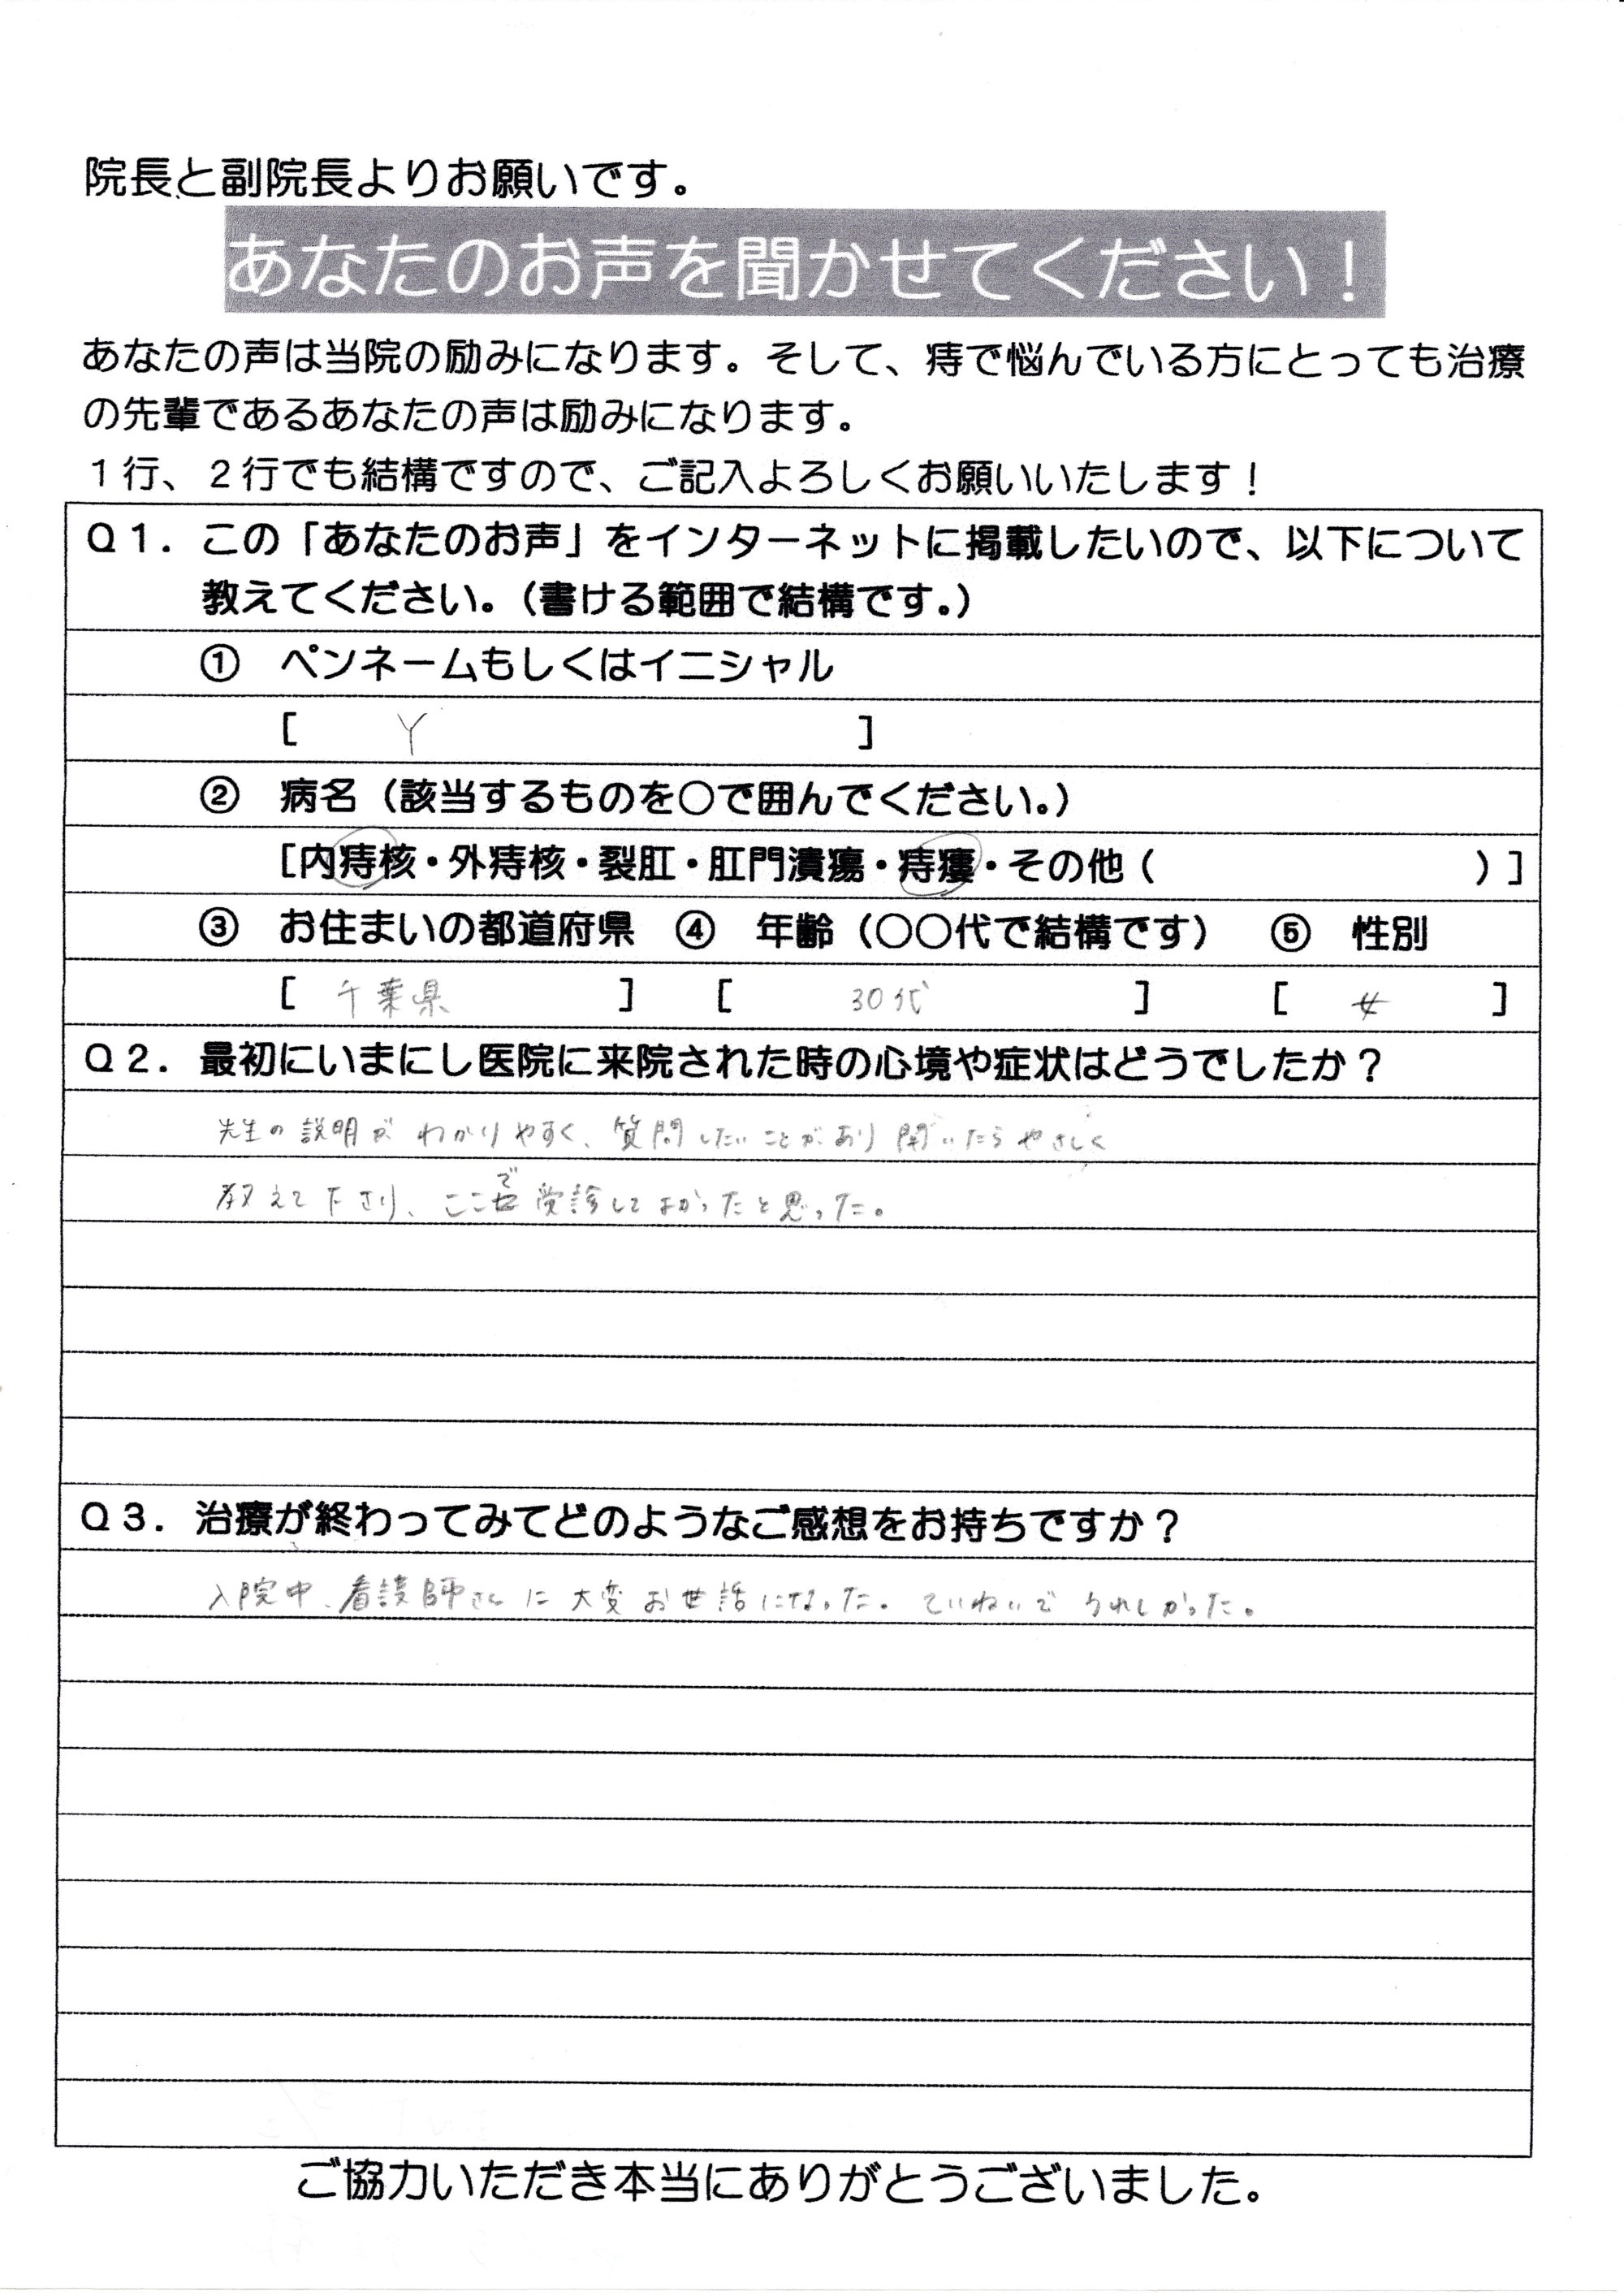 院長と副院長よりお願いです。
あなたのお声を聞かせてください！
あなたの声は当院の励みになります。そして、痔で悩んでいる方にとっても治療
の先輩であるあなたの声は励みになります。
１行、２行でも結構ですので、ご記入よろしくお願いいたします！
Ｑ１．この「あなたのお声」をインターネットに掲載したいので、以下について
教えてください。（書ける範囲で結構です。）
①　ペンネームもしくはイニシャル
[　Y　]
②　病名（該当するものを○で囲んでください。）
[内痔核・外痔核・裂肛・肛門潰瘍・痔瘻・その他（　　）]
③　お住まいの都道府県　④　年齢（○○代で結構です）　⑤　性別
[　千葉県　]　[　30代　]　[　女　]
Ｑ２．最初にいまにし医院に来院された時の心境や症状はどうでしたか？
先生の説明が わかりやすく、質問したいことがあり 聞いたらやさしく
教えて下さり、ここで受診してよかったと思った。
Ｑ３．治療が終わってみてどのようなご感想をお持ちですか？
入院中、看護師さんに 大変お世話になった。ていねいで うれしかった。
ご協力いただき本当にありがとうございました。